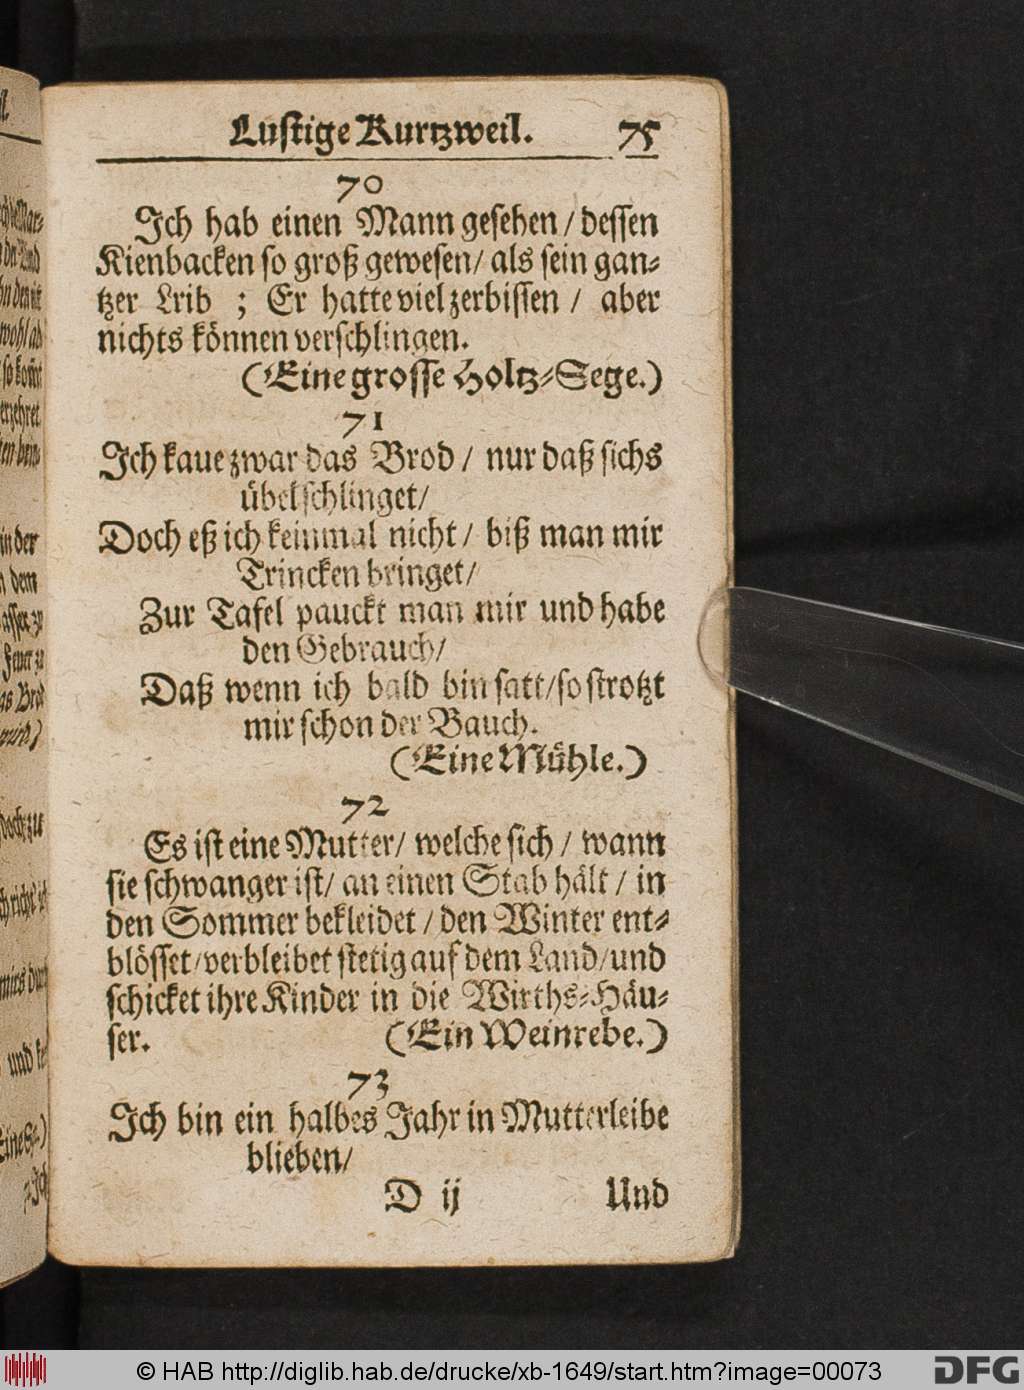 Lustige Kurtzweil. 75
70
Ich hab einen Mann gesehen / dessen
Kienbacken so groß gewesen / als sein gan⸗
tzer Lrib ; Er hatte viel zerbissen / aber
nichts können verschlingen.
(Eine grosse Holtz⸗Sege.)
71
Ich kaue zwar das Brod / nur daß sichs
übel schlinget /
Doch eß ich keinmal nicht / biß man mir
Trincken bringet /
Zur Tafel pauckt man mir und habe
den Gebrauch /
Daß wenn ich bald bin satt / so strotzt
mir schon der Bauch.
(Eine Mühle.)
72
Es ist eine Mutter / welche sich / wann
sie schwanger ist / an einen Stab hält / in
den Sommer bekleidet / den Winter ent⸗
blösset / verbleibet stetig auf dem Land / und
schicket ihre Kinder in die Wirths⸗Häu⸗
ser. (Ein Weinrebe.)
73
Ich bin ein halbes Jahr in Mutterleibe
blieben /
D ij Und
© HAB http://diglib.hab.de/drucke/xb-1649/start.htm?image=00073
DFG